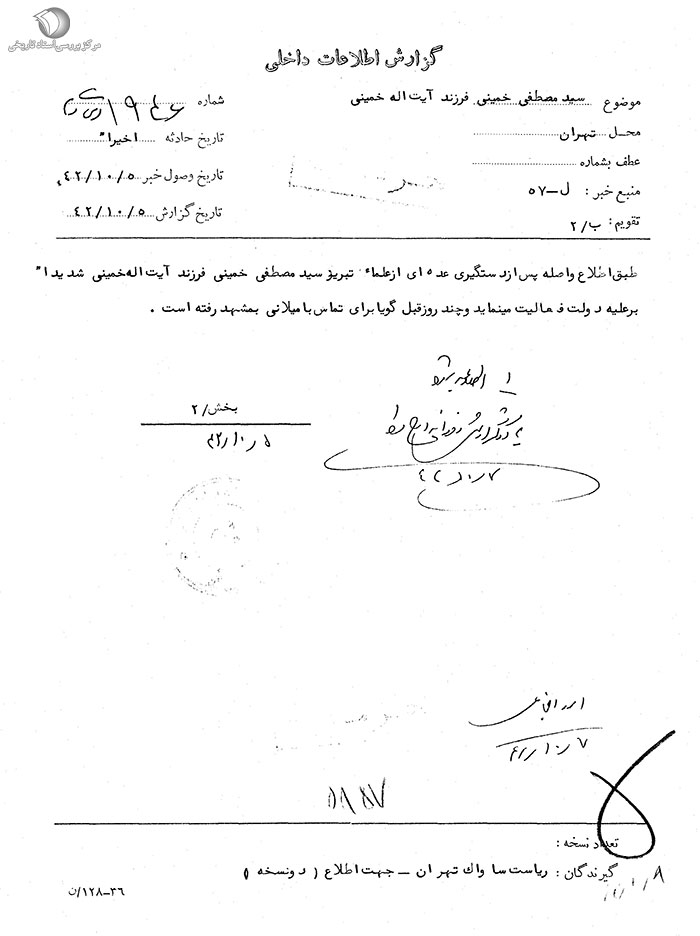 مرکز بررسی اسناد تاریخی
گزارش اطلاعات داخلی
موضوع سید مصطفی خمینی فرزند آیت اله خمینی
شماره
محـل تهران
تاریخ حادثه اخیراً
عطف بشماره
تاریخ وصول خبر ۴۲/۱۰/۵
منبع خبر : ل-۵۷
تاریخ گزارش ۴۲/۱۰/۵
تقویم : ب/۲
طبق اطلاع واصله پس از دستگیری عده ای از علماء تبریز سید مصطفی خمینی فرزند آیت اله خمینی شدیداً
برعلیه دولت فعالیت مینماید و چند روز قبل گویا برای تماس با میلانی بمشهد رفته است .
بخش/۲
۴۲/۱۰/۵
۴۲/۱۰/۷
۴۲/۱۰/۷
تعداد نسخه :
گیرندگان : ریاست ساواك تهران – جهت اطلاع ( دونسخه )
۳۶-۱۲۸/ن